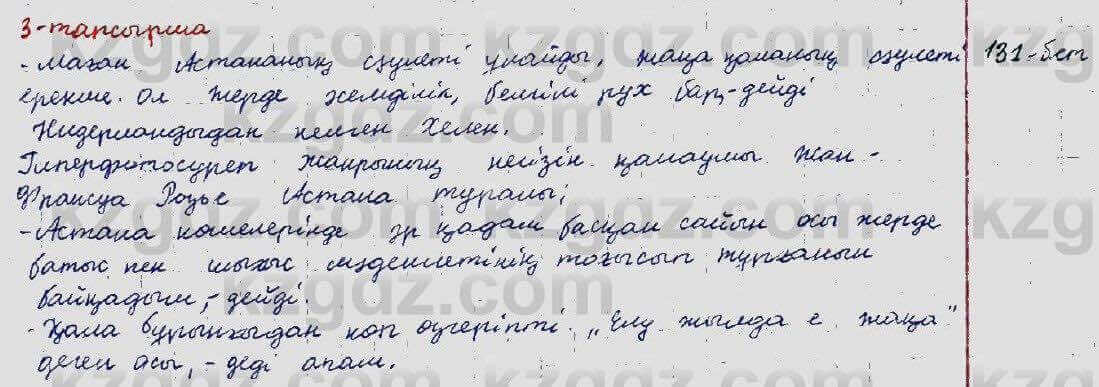 3-тапсырма
- Маған Астананың сәулеті ұнайды, жаңа қаланың сәулеті 131-бет
ерекше. Ол жерде жемділік, белгілі рух бар,-дейді
Нидерландыдан келген Хелен.
Гиперфотосурет жанрының негізін қалаушы Жан -
Франсуа Розье Астана туралы;
- Астана көшелерінде әр қадам басқан сайын осы жерде
батыс пен шығыс мәдениетінің тоғысып тұрғанын
байқадым, - дейді.
- Қала бұрынғыдан көп өзгеріпті. „Елу жылда ел жаңа"
деген осы, - деді апам.
kzgdz.com